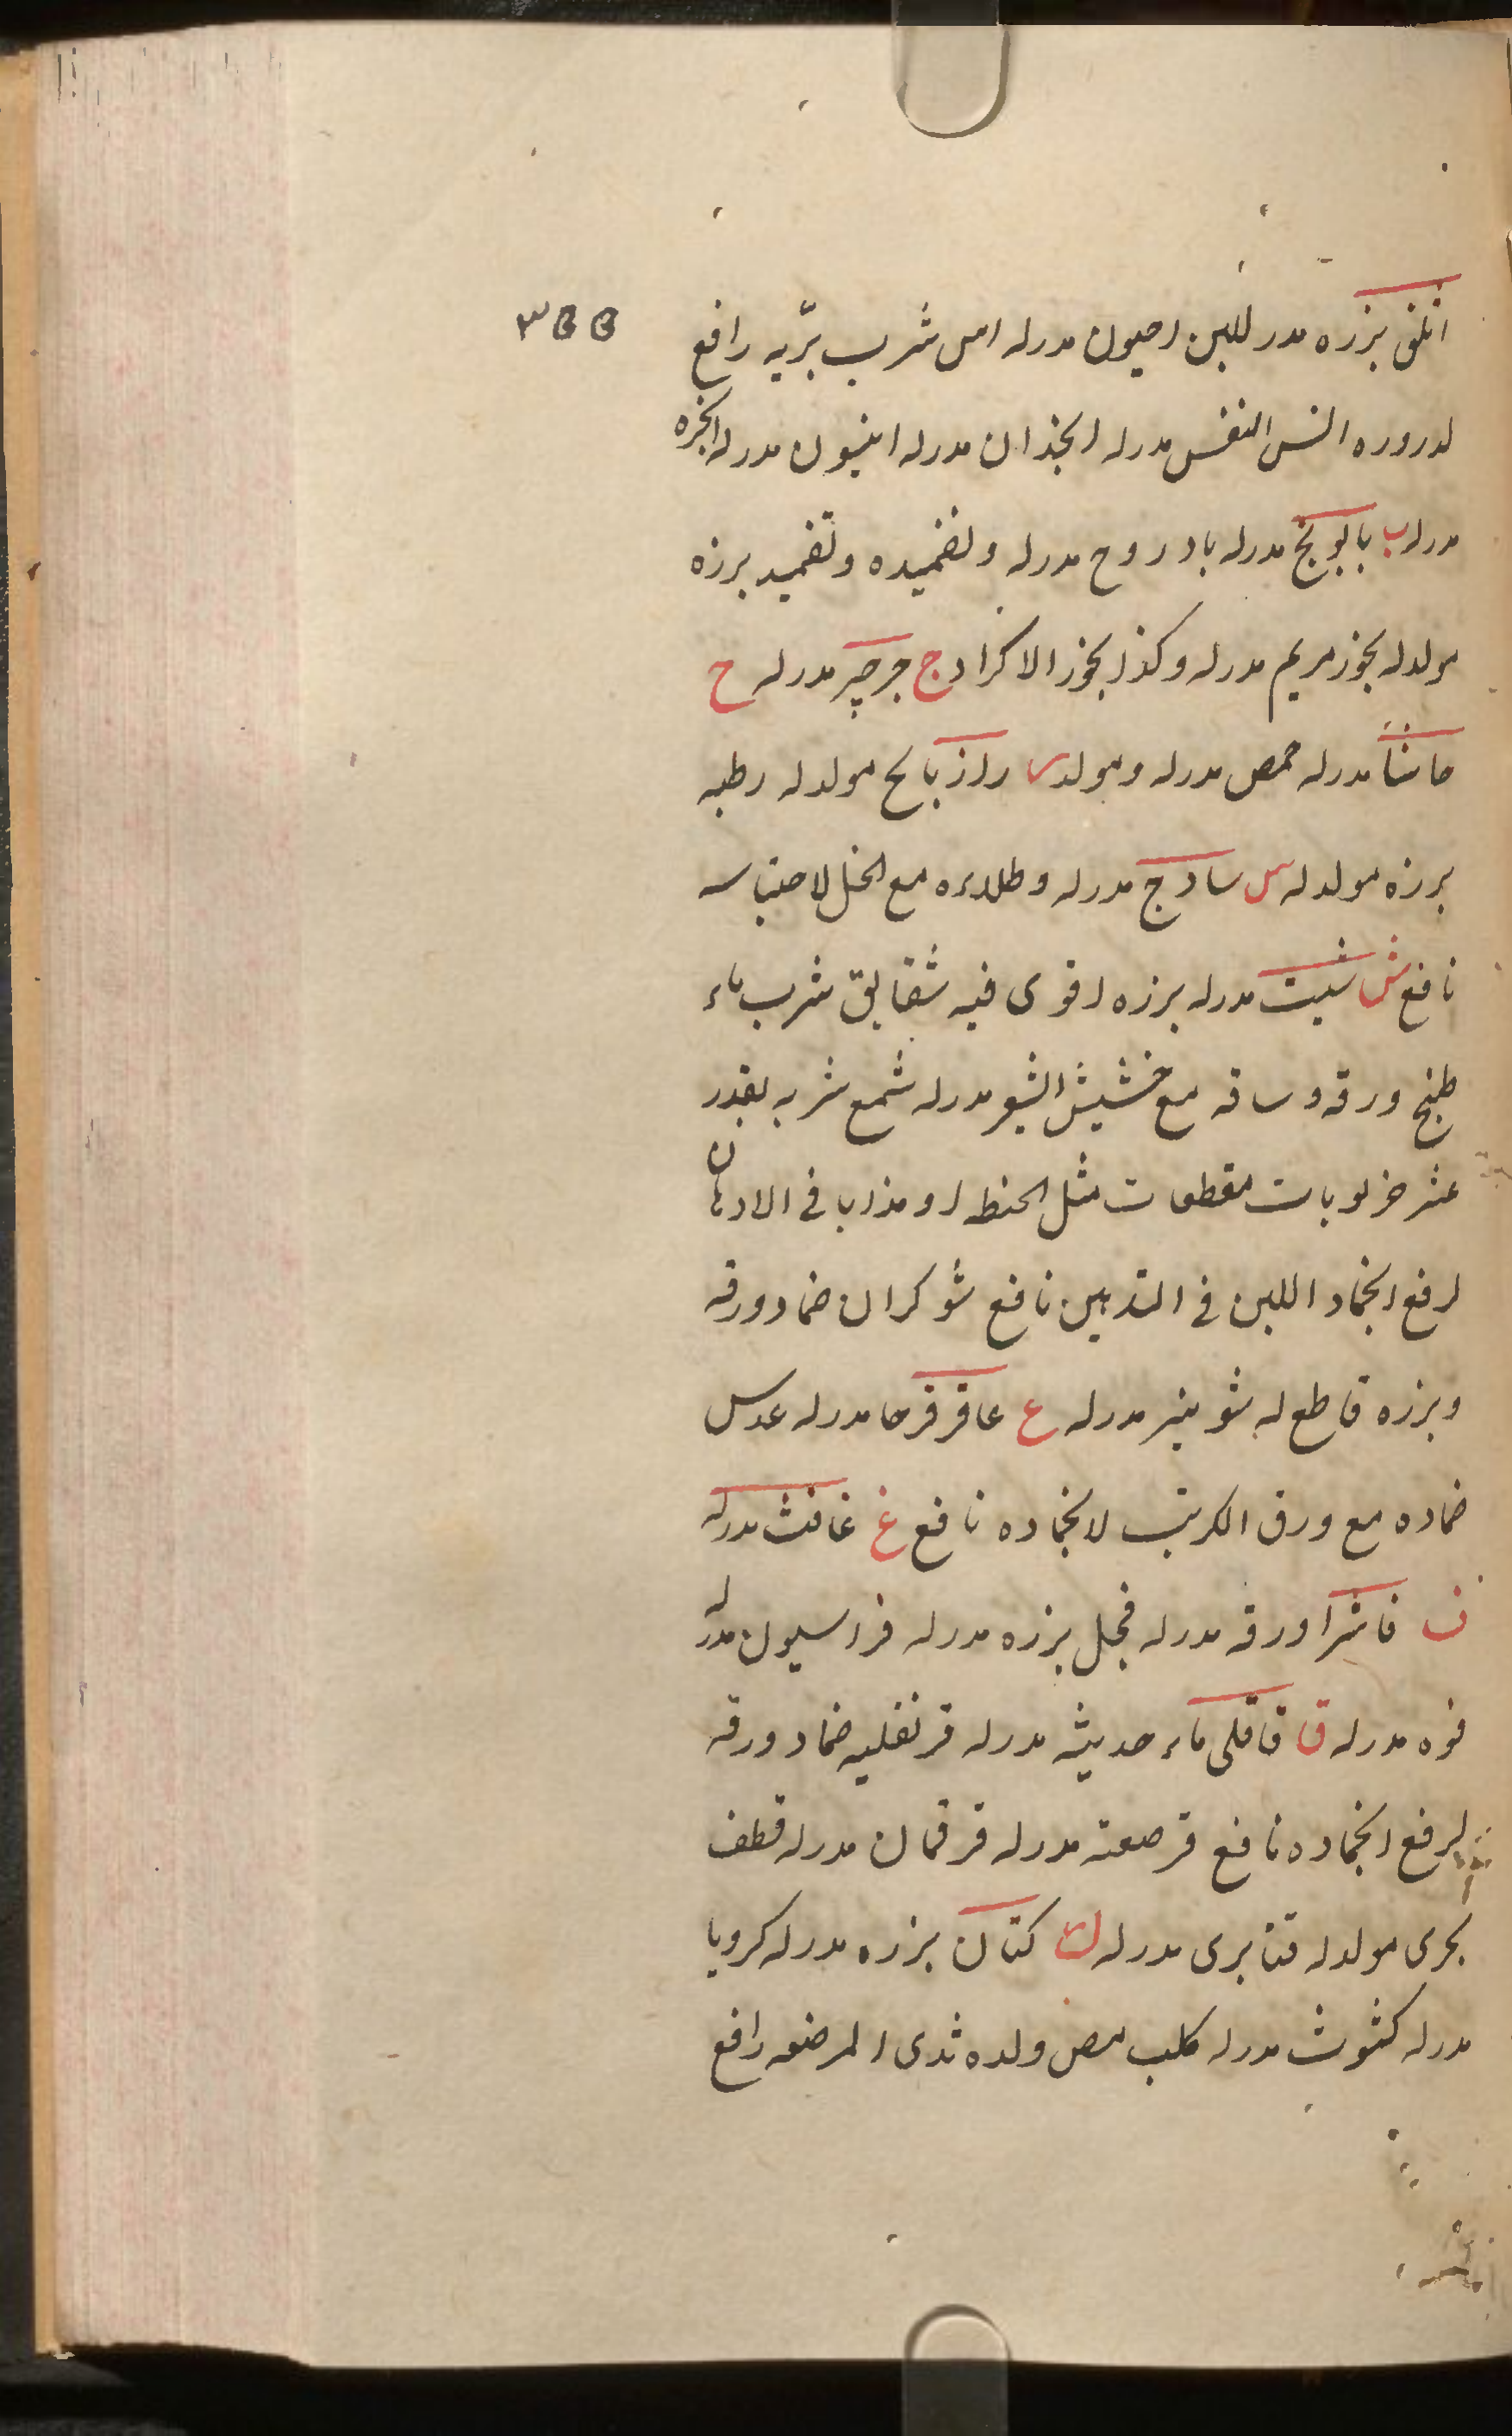 ٣٥٥
اثلق بزره مدر للبن احيون مدرله امس شرب برّيه رافع
لدروره النفس مدرله انجذان مدرله انيسون مدرله انجره
مدرله ب بابونج مدرله بادروح مدرله وتضميده وتضميد بزره
مولدله بخور مريم مدرله وكذا بخور الاكراد ج جرجير مدرله ح
حاشا مدرله حمص مدرله ومولد ر رازيانج مولدله رطبه
بزره مولدله س سادج مدرله وطلاءه مع الخل لاحتباسه
نافع ش شبت مدرله بزره اقوى فيه شقايق شرب ماء
طبخ ورقه وساقه مع حشيش الشعير مدرله شمع شربه بقدر
عشر خرلوبات مقطعات مثل الحنطه او مذابا فى الادهان
لرفع انجماد اللبن فى الثديين نافع شوكران ضماد ورقه
وبزره قاطع له شونيز مدرله ع عاقرقرحا مدرله عدس
ضماده مع ورق الكرنب لانجماده نافع غ غافث مدرله
ف فاشرا ورقه مدرله فجل بزره مدرله فراسيون مدرله
فوه مدرله ق قاقلى ماء حديثه مدرله قرنفليه ضماد ورقه
لرفع انجماده نافع قرصعنه مدرله قرقمان مدرله قطف
بحرى مولدله قنابرى مدرله ك كتان بزره مدرله كرويا
مدرله كشوث مدرله كلب مص ولده ثدى المرضعه رافع